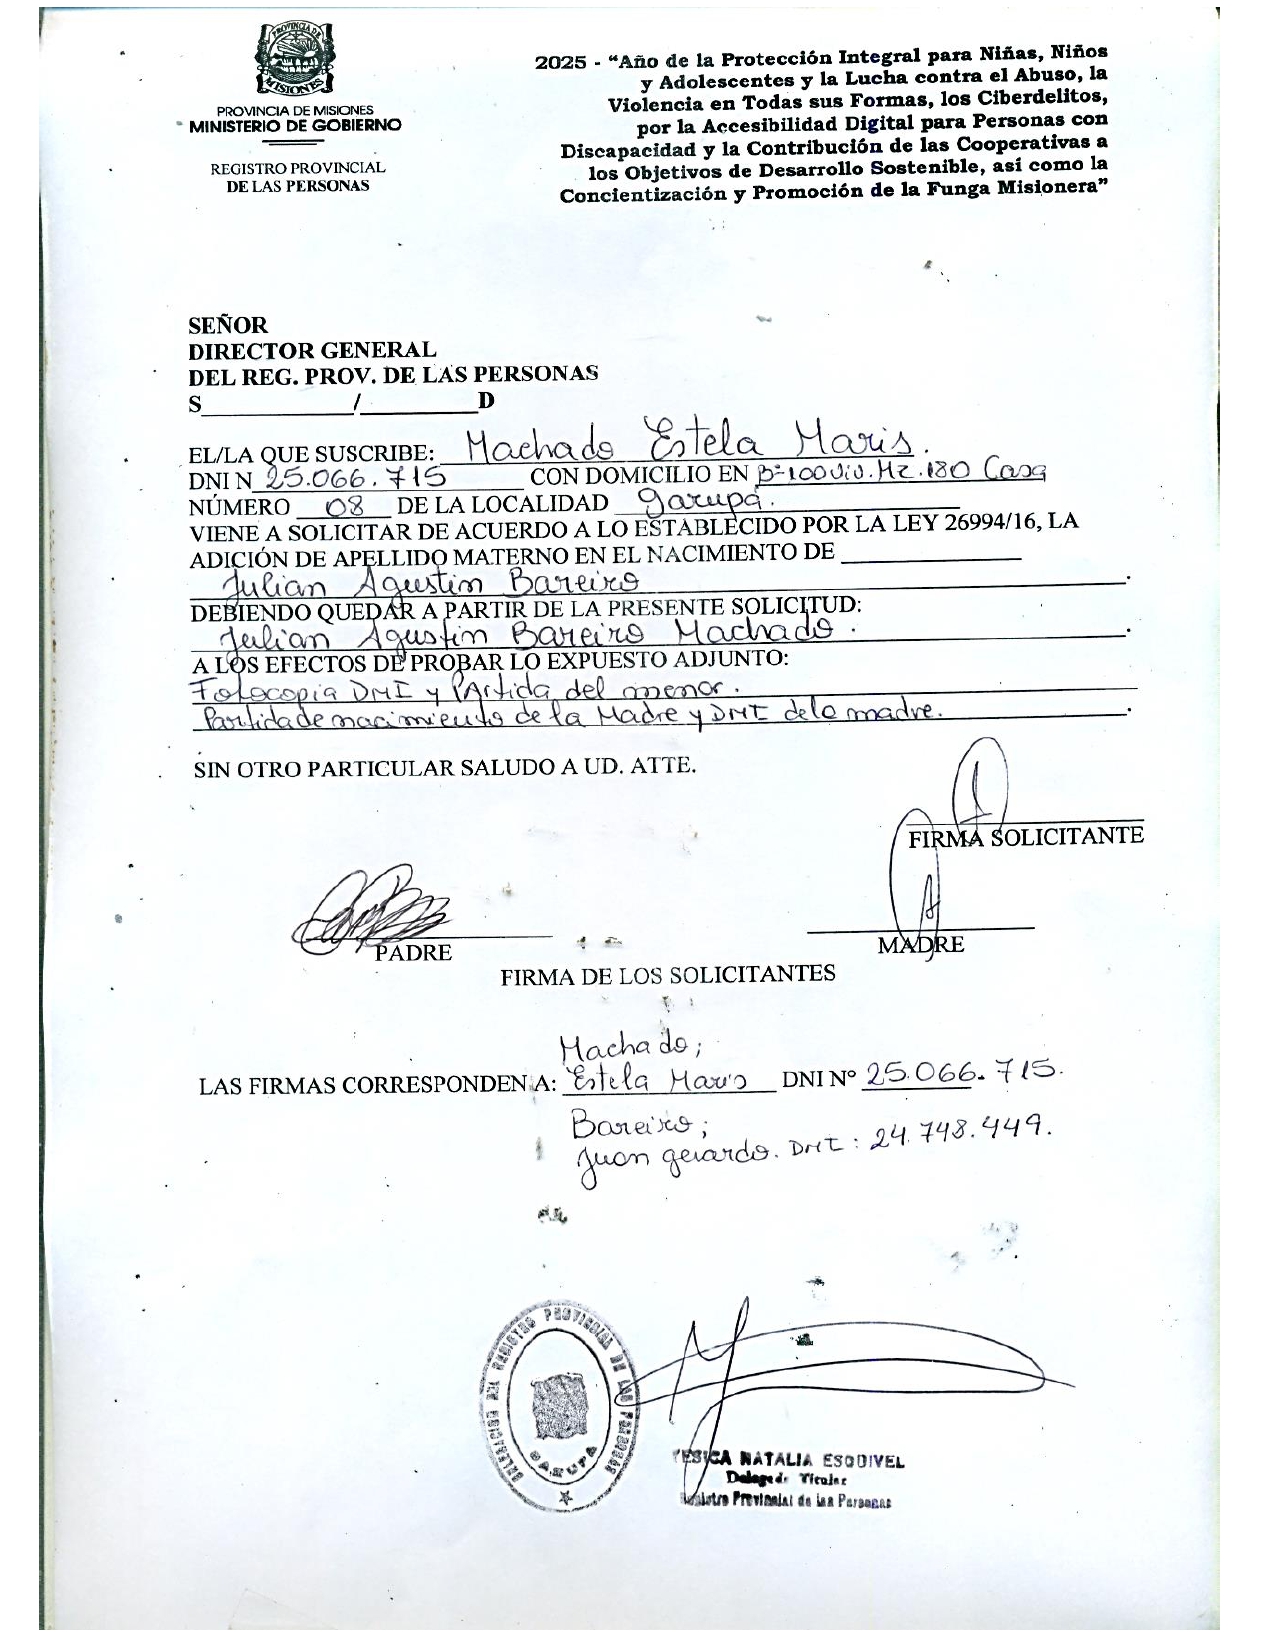 PROVINCIA DE
MISIONES
PROVINCIA DE MISIONES
MINISTERIO DE GOBIERNO
REGISTRO PROVINCIAL
DE LAS PERSONAS
2025 - “Año de la Protección Integral para Niñas, Niños
y Adolescentes y la Lucha contra el Abuso, la
Violencia en Todas sus Formas, los Ciberdelitos,
por la Accesibilidad Digital para Personas con
Discapacidad y la Contribución de las Cooperativas a
los Objetivos de Desarrollo Sostenible, así como la
Concientización y Promoción de la Funga Misionera”
SEÑOR
DIRECTOR GENERAL
DEL REG. PROV. DE LAS PERSONAS
S____________/__________D
EL/LA QUE SUSCRIBE: Machado Estela Maris.
DNI N 25.066.715 CON DOMICILIO EN Bº 100 Viv. Mz. 180 Casa
NÚMERO 08 DE LA LOCALIDAD Garupá.
VIENE A SOLICITAR DE ACUERDO A LO ESTABLECIDO POR LA LEY 26994/16, LA
ADICIÓN DE APELLIDO MATERNO EN EL NACIMIENTO DE
Julian Agustin Bareiro.
DEBIENDO QUEDAR A PARTIR DE LA PRESENTE SOLICITUD:
Julian Agustin Bareiro Machado.
A LOS EFECTOS DE PROBAR LO EXPUESTO ADJUNTO:
Fotocopia DNI y PArtida del menor.
Partida de nacimiento de la Madre y DNI de la madre.
SIN OTRO PARTICULAR SALUDO A UD. ATTE.
FIRMA SOLICITANTE
PADRE
MADRE
FIRMA DE LOS SOLICITANTES
Machado;
LAS FIRMAS CORRESPONDEN A: Estela Maris DNI Nº 25.066.715.
Bareiro;
Juan gerardo. DNI: 24.748.449.
DELEGACION DEL REGISTRO PROVINCIAL DE LAS PERSONAS
GARUPA
YESICA NATALIA ESQUIVEL
Delegada Titular
Registro Provincial de las Personas